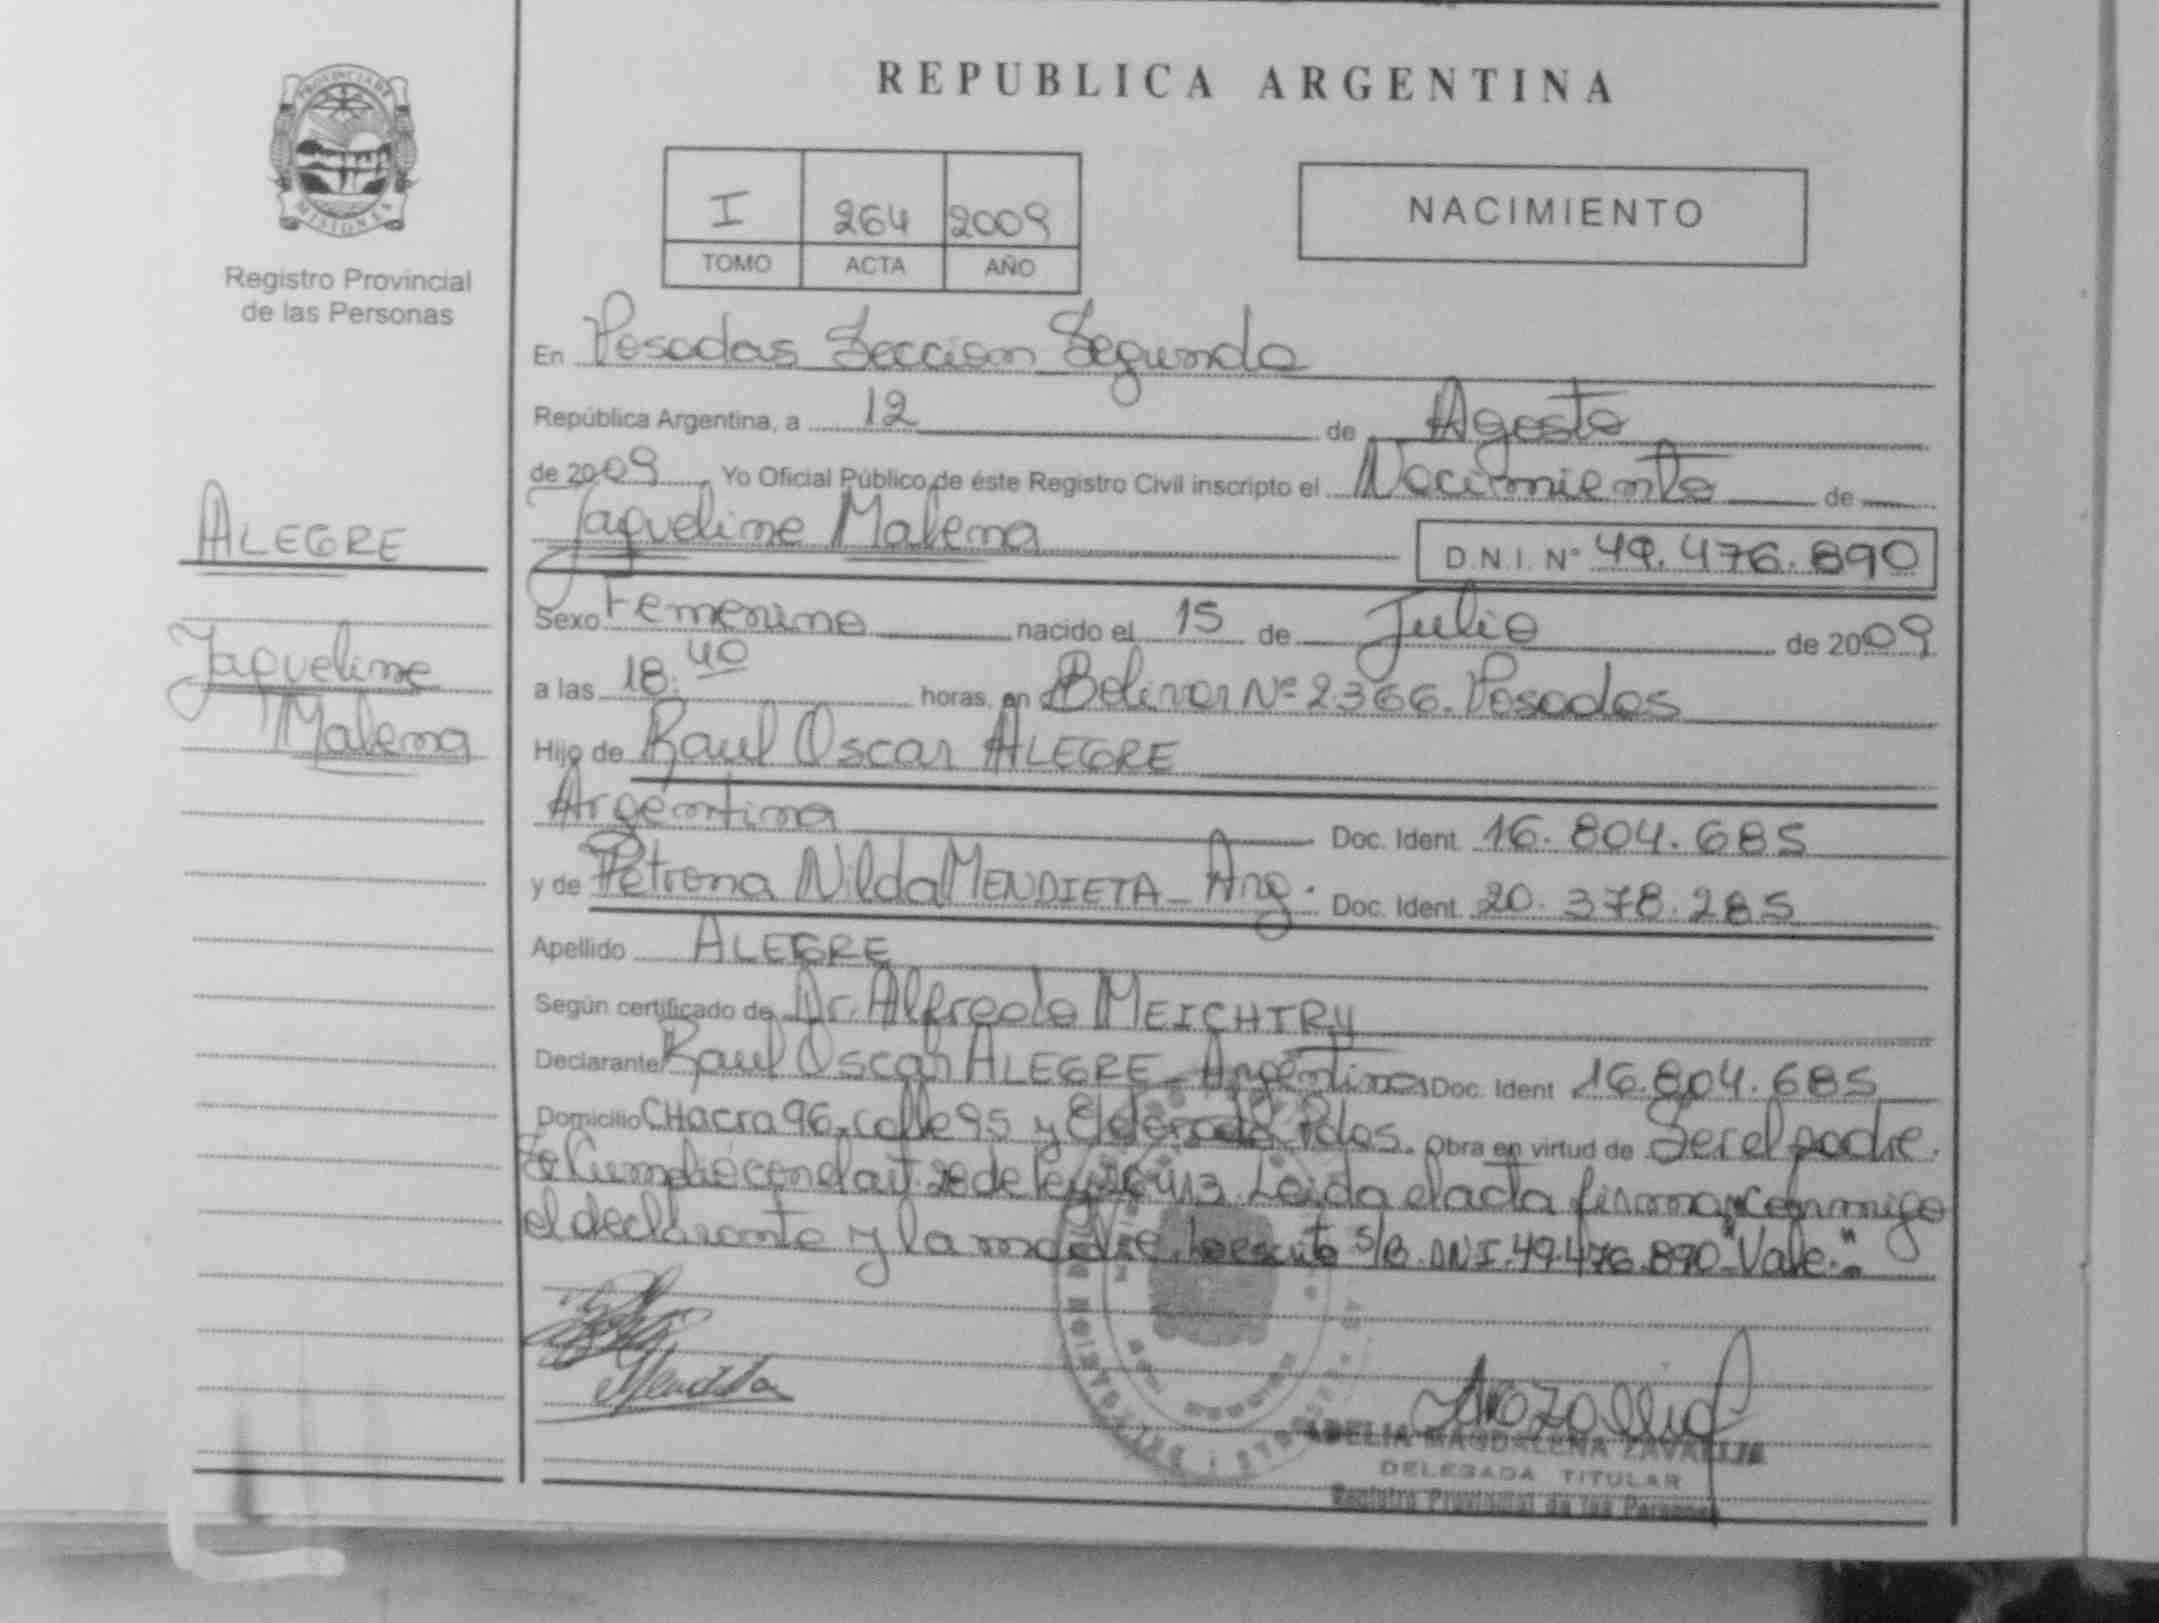 PROVINCIA DE
MISIONES
Registro Provincial
de las Personas
ALEGRE
Jaqueline
Malena
REPUBLICA ARGENTINA
I 264 2009
TOMO ACTA AÑO
NACIMIENTO
En Posadas Seccion Segunda
República Argentina, a 12 de Agosto
de 2009 Yo Oficial Público de éste Registro Civil inscripto el Nacimiento de
Jaqueline Malena D.N.I. Nº 49.476.890
Sexo Femenino nacido el 15 de Julio de 2009
a las 18:40 horas, en Bolivar Nº 2366. Posadas
Hijo de Raul Oscar ALEGRE
Argentina Doc. Ident. 16.804.685
y de Petrona Nilda MENDIETA - Arg. Doc. Ident. 20.378.285
Apellido ALEGRE
Según certificado de Dr. Alfredo MEICHTRY
Declarante Raul Oscar ALEGRE - Argentino Doc. Ident 16.804.685
Domicilio CHacra 96, calle 95 y Eldorado Pdas. Obra en virtud de Ser el padre.
Se Cumplió con el art. 28 de ley 26413. Leida el acta firman conmigo
el declarante y la madre. s/B. DNI. 49.476.890 "Vale."
Mendieta
ADELIA MAGDALENA ZAVALLIA
DELEGADA TITULAR
Registro Provincial de las Personas